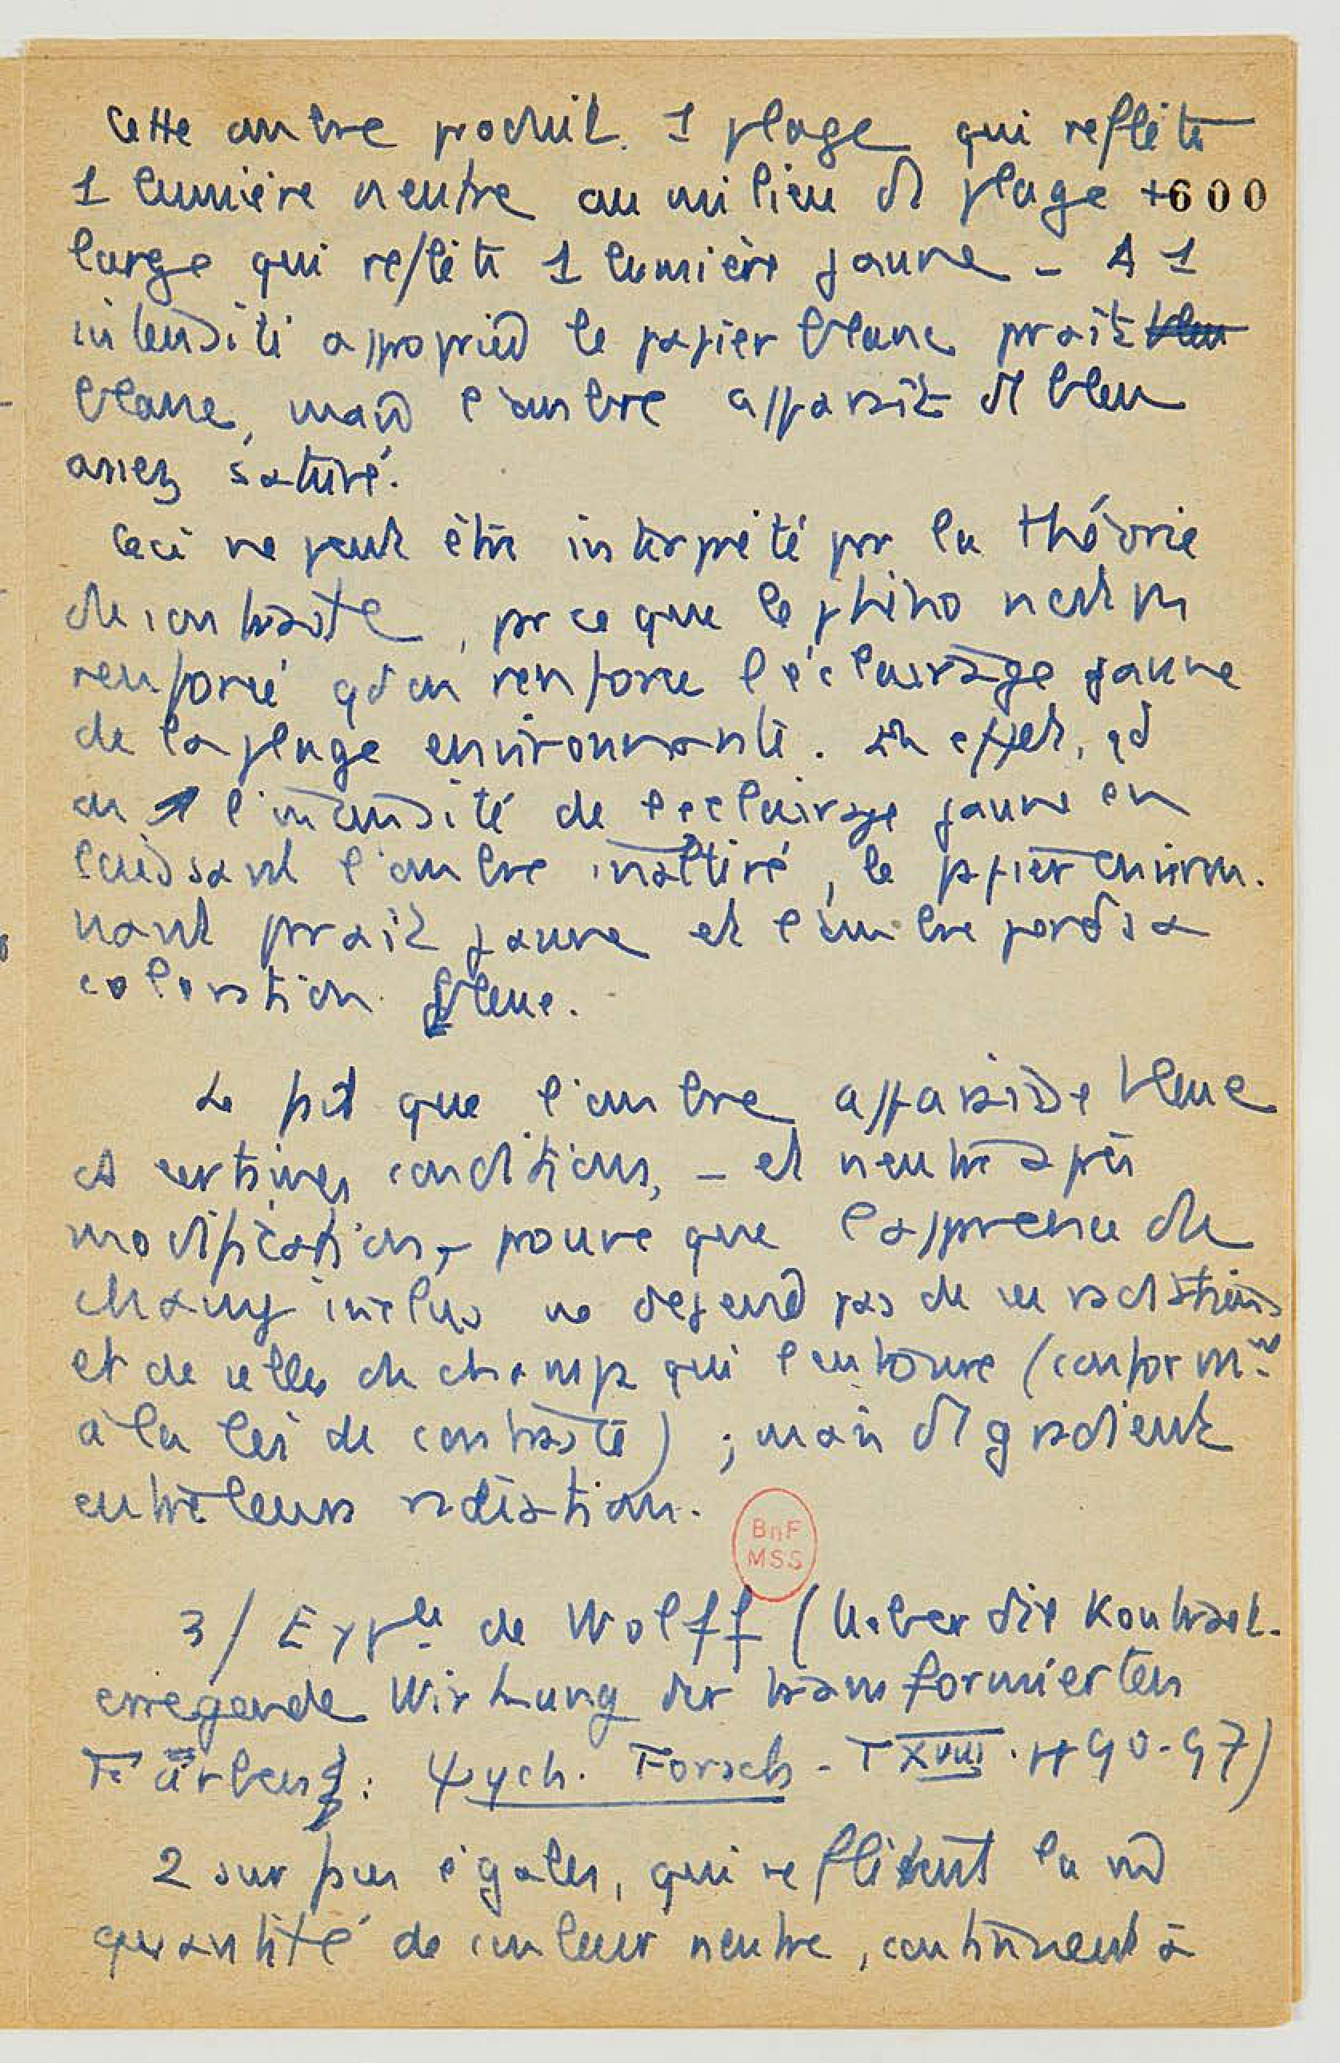 Cette ombre produit 1 plage qui reflète
1 lumière neutre au milieu d' plage +600
large qui reflète 1 lumière jaune - A 1
intensité appropriée le papier blanc prait bleu
blanc, mais l'ombre apparait d' bleu
assez saturé.
Ceci ne peut être interprété pr la théorie
du contraste, pr ce que le phéno n'est pas
renforcé qd on renforce l'éclairage jaune
de la plage environnante. En effet, qd
on ↗ l'intensité de l'éclairage jaune en
laissant l'ombre inaltéré, le papier environ-
nant prait jaune et l'ombre perd sa
coloration bleue.
Le fait que l'ombre apparaisse bleue
ds certaines conditions, - et neutre après
modification, - prouve que l'apprence du
champ inclus ne dépend pas de ses radiations
et de celles du champ qui l'entoure (conformt
à la loi de contraste) ; mais d' gradient
entre leurs radiation.
BnF
MSS
3/ Expce de Wolff (Ueber die Kontrast-
erregende Wirkung der transformierten
Färben : Psych. Forsch - T XVIII. pp 90-97)
2 surfaces égales, qui reflètent la m̂
quantité de couleur neutre, continuent à